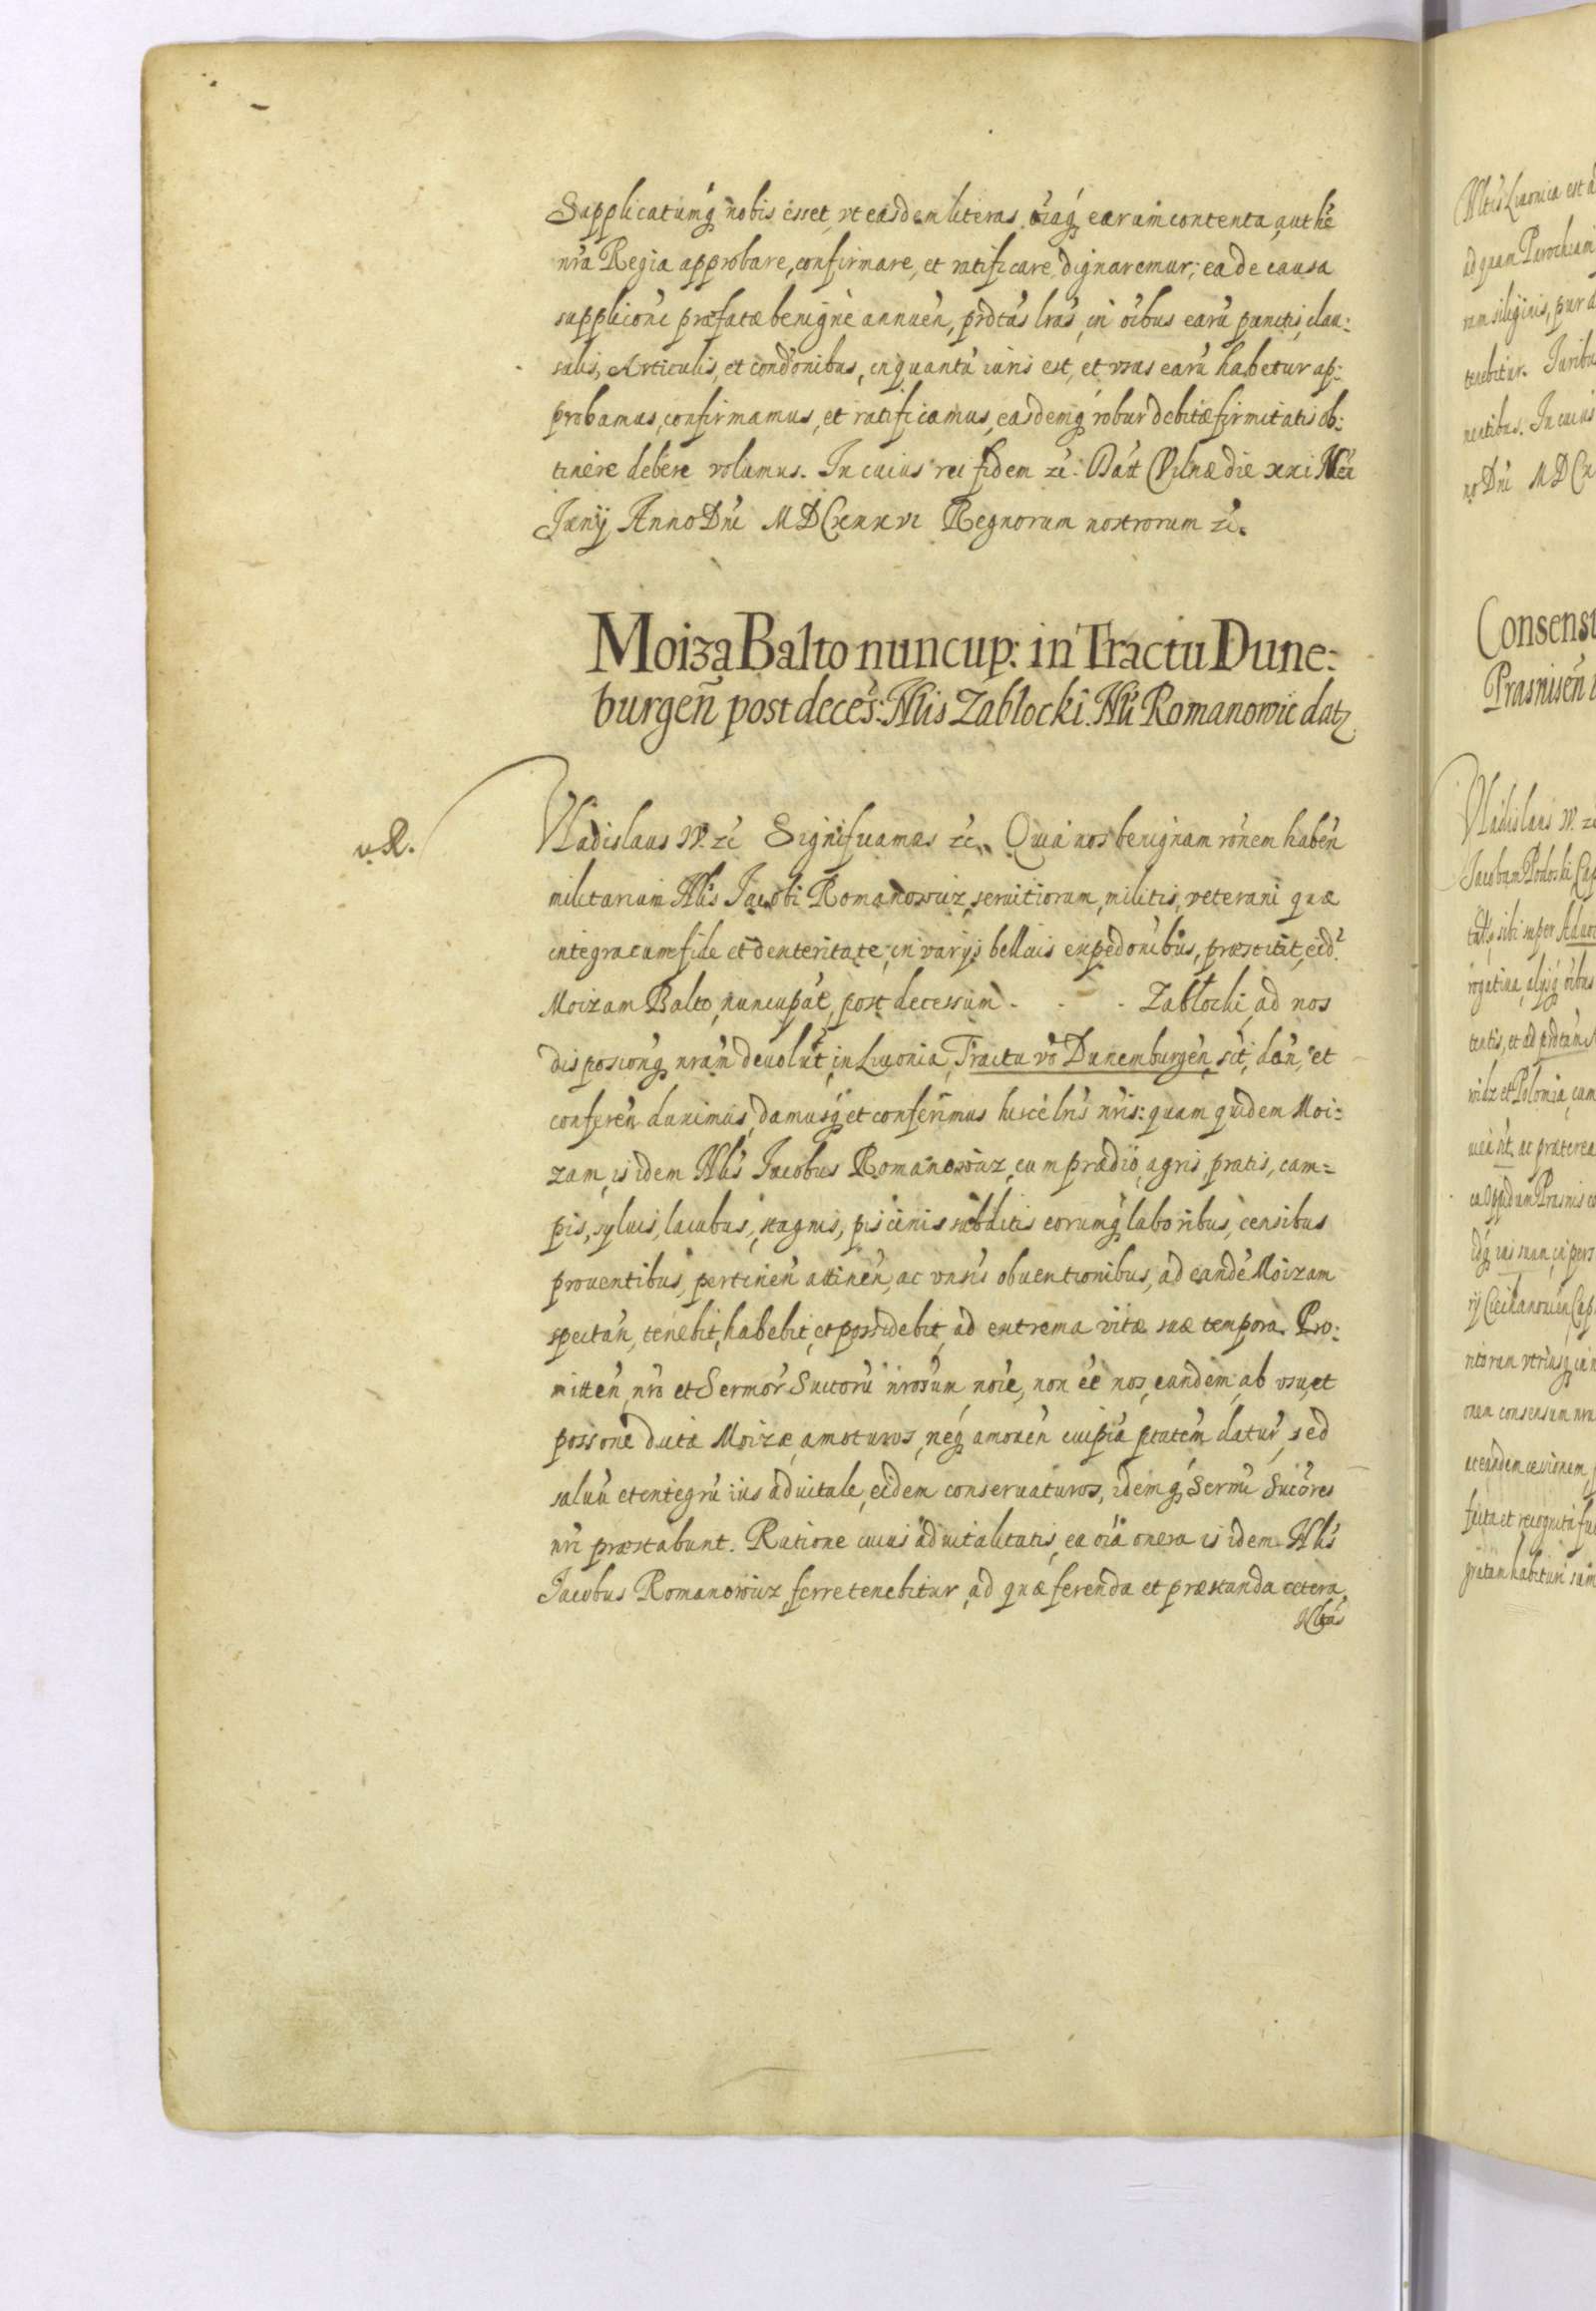 Supplicatumq nobis esset, vt easdem literas, oiaq earum contenta, authe
nra Regia approbare, confirmare, et ratificare dignaremur; ea de causa
supplicioni præfatæ benignè annuen, prdtas lras, in oibus earu punctis, clau:
sulis, Articulis, et condonibus, inquantu iuris est, et vsus earu habetur ap:
probamus, confirmamus, et ratificamus, easdemq robur debitæ firmitatis ob:
tinere debere volumus. In cuius rei fidem zc. Dat Vilnæ die xxi Mea
Junij Anno Dni MDCxxxvi Regnorum nostrorum zc.
Moiza Balto nuncup: in Tractu Dune:
burgen post deces: Nlis Zablocki. Nli Romanowic datz
v.R.
Vladislaus IV. zc Significamus zc. Quia nos benignam ronem haben
militarium Nlis Jacobi Romanowicz, seruitiorum, militis, veterani quæ
integra cum fide et dexteritate, in varijs bellicis expedonibus, præstitit, eid.
Moizam Balto, nuncupat, post decessum - - - Zabłocki, ad nos
disposionq nram deuolut, in Liuonia, Tractu vo Dunemburgen, sit, dan, et
conferen duximus, damusq et conferimus hisce lris nris: quam quidem Moi:
zam, is idem Nlis Jacobus Romanowicz, cum prædio, agris, pratis, cam=
pis, syluis, lacubus, stagnis, piscinis subditis eorumq laboribus, censibus
prouentibus, pertinen attinen, ac vnsis obuentionibus, ad eande Moizam
spectan, tenebit, habebit, et possidebit, ad extrema vitæ suæ tempora. Pro:
mitten, nro et Sermor Succoru nrorum, noie, non ee nos, eundem, ab vsu, et
possone dictæ Moizæ, amoturos, neq amouen cuipia ptatem datur, sed
saluu et integru ius aduitale, eidem conseruaturos, idemq Sermi Sucores
nri præstabunt. Ratione cuius aduitalitatis, ea oia onera is idem Nlis
Jacobus Romanowicz, ferre tenebitur, ad quæ ferenda et præstanda cetera
Nltas